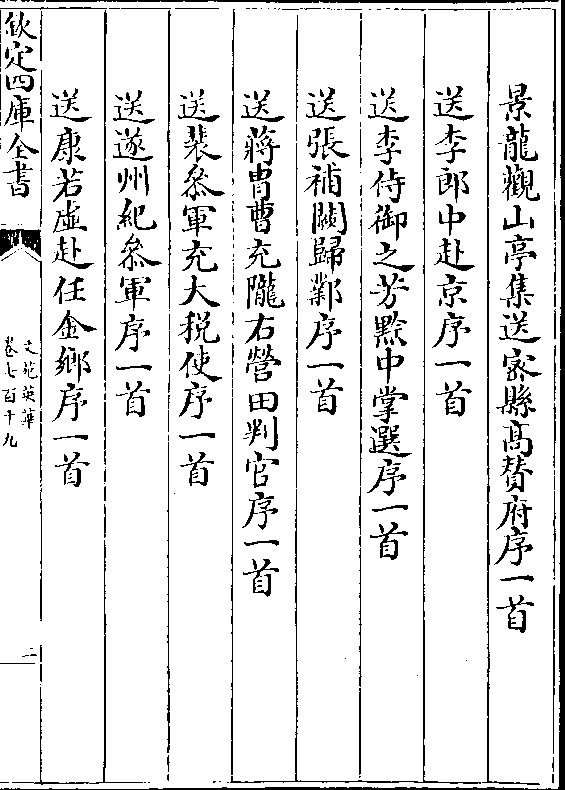 景龍觀山亭集送宻縣髙贊府序一首
送李郎中赴京序一首
送李侍御之芳黔中掌選序一首
送張補闕歸鄴序一首
送蔣胄曹充隴右營田判官序一首
送裴叅軍充大税使序一首
送遂州紀叅軍序一首
送康若虚赴任金鄉序一首
欽定四庫全書
文苑英華
卷七百十九
二